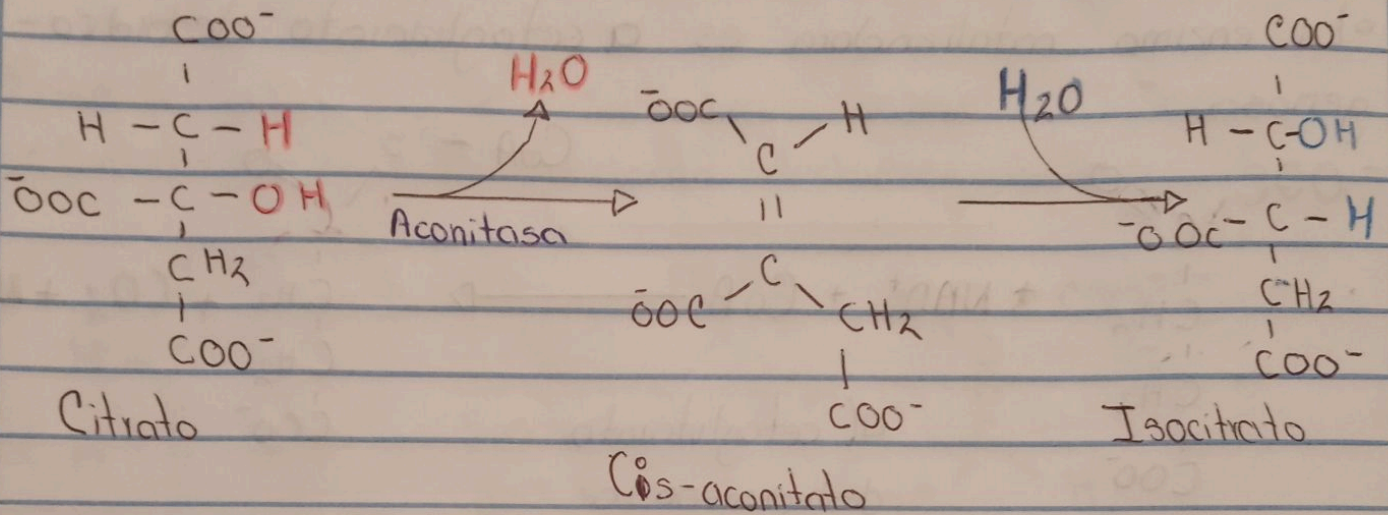 COO⁻
H - C - H
⁻OOC - C - OH
CH2
COO⁻
Citrato
H2O
Aconitasa
⁻OOC H
C
||
C
⁻OOC CH2
COO⁻
Cis-aconitato
H2O
COO⁻
H - C-OH
⁻OOC - C - H
CH2
COO⁻
Isocitrato